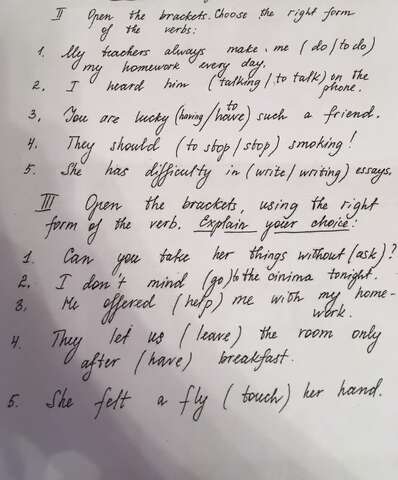 II Open the brackets. Choose the right form
of the verbs:
1. My teachers always make me (do / to do)
my homework every day.
2. I heard him (talking / to talk) on the
phone.
3. You are lucky (having / to have) such a friend.
4. They should (to stop / stop) smoking!
5. She has difficulty in (write / writing) essays.
III Open the brackets, using the right
form of the verb. Explain your choice:
1. Can you take her things without (ask)?
2. I don't mind (go) to the cinima tonight.
3. He offered (help) me with my home-
work.
4. They let us (leave) the room only
after (have) breakfast.
5. She felt a fly (touch) her hand.